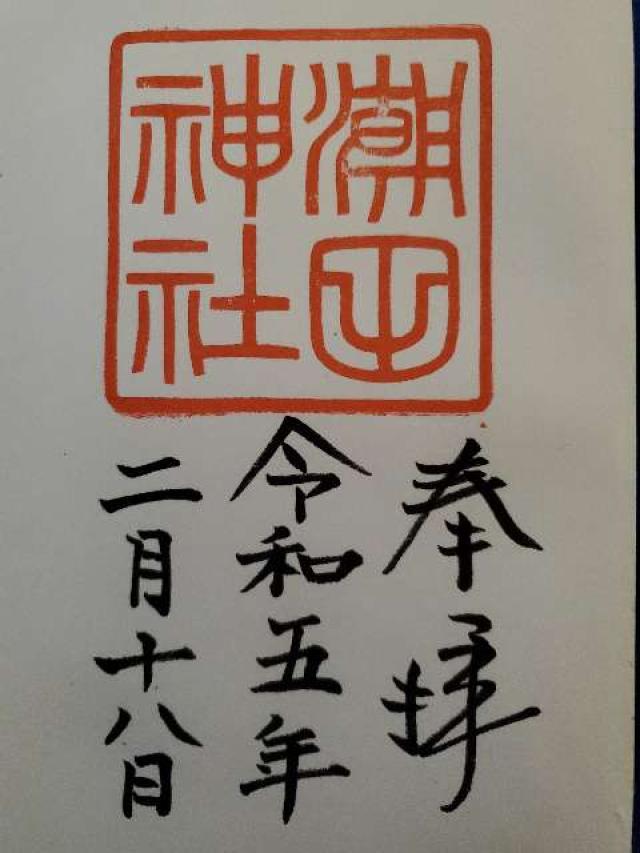 潮田
神社
奉拝
令和五年
二月十八日